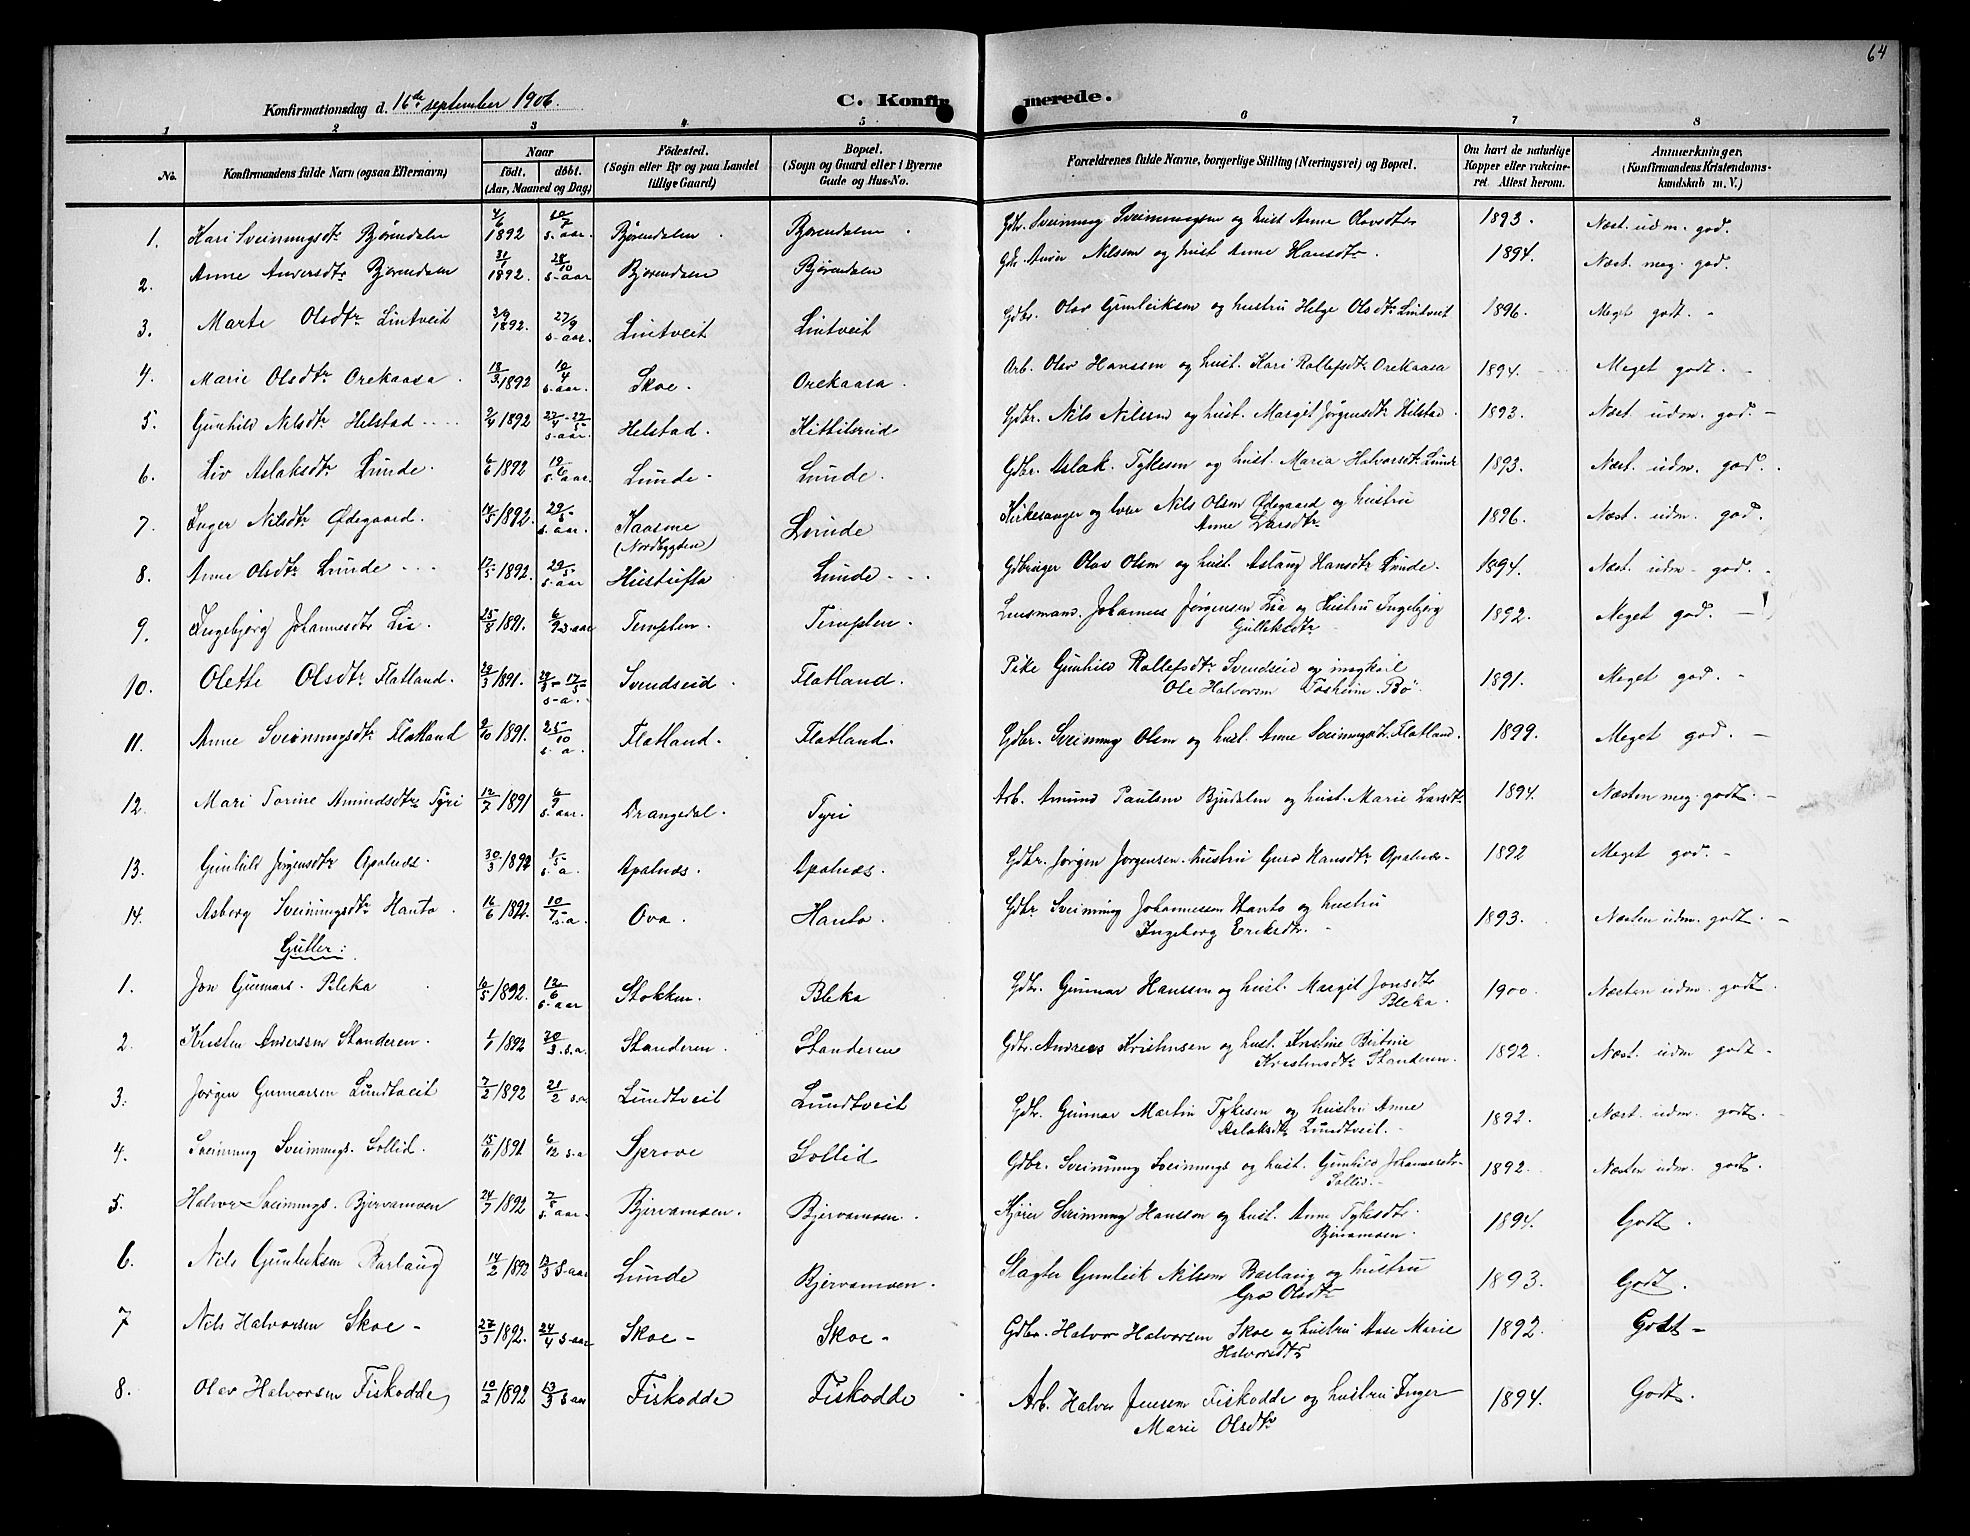 64
Konfirmationsdag d. 16de september 1906.
C. Konfirmerede.
1 2 3 4 5 6 7 8
No.
Konfirmandens fulde Navn (ogsaa Efternavn)
Naar
födt. döbt.
(Aar, Maaned og Dag)
Födested.
(Sogn eller By og paa Landet
tillige Gaard)
Bopæl.
(Sogn og Gaard eller i Byerne
Gade og Hus-No.
Forældrenes fulde Navne, borgerlige Stilling (Næringsvei) og Bopæl.
Om havt de naturlige
Kopper eller vakcine-
ret. Attest herom.
Anmærkninger.
(Konfirmandens Kristendoms-
kundskab m. V.)
1. Kari Sveinungsdtr Bjørendalen 4/6 1892 10/7 s. aar. Bjørendalen Bjørendalen Gdbr. Sveinung Sveinungsen og hust Anne Olavsdtr 1893. Næst. udm. god.
2. Anne Andersdtr Bjørendalen 31/1 1892. 28/10 s. aar Bjørendalen Bjørendalen Nilsen og hust Anne Hansdtr. 1894. Næst. meg. god.
3. Marte Olsdtr Lintveit 3/9 1892. 27/9 s. aar. Lintveit Lintveit Gdbr. Olav Gunleiksen og hustru Helge Olsdtr Lintveit 1896. Meget godt.
4. Marie Olsdtr Orekaasa. 18/3 1892 10/4 s. aar. Skoe. Orekaasa. Arb. Olav Hanssen og hust. Kari Rollefsdtr Orekaasa 1894. Meget godt.
5. Gunhild Nilsdtr Helstad 2/4 1892 27/4 - 22/5 s. aar. Helstad. Kittilsrud Gdbr. Nils Nilssen og hust. Margit Jørgensdtr Helstad. 1893. Næst. udm. god.
6. Liv Aslaksdtr Lunde. 6/6 1892 19/6 s. aar. Lunde. Lunde. Gdbr. Aslak Tykesen og hust. Maria Halvorsdtr Lunde 1893. Næst. udm. god.
7. Inger Nilsdtr Ødegaard. 14/5 1892. 29/5 s. aar. Kaasene Lunde Kirkesanger og lærer Nils Olsen Ødegaard og hustru 1896. Næst. udm. god.
(Nordbygden) Anne Larsdtr
8. Anne Olsdtr Lunde 12/5 1892. 29/5 s. aar Hustufta Lunde Gdbruger Olav Olsen og hust. Aslaug Hansdtr Lunde. 1894. Næst. udm. god.
9. Ingebjørg Johannesdtr Lia. 25/8 1891. 6/9 s. aar Templen. Templen. Lensmand. Johannes Jørgensen Lia og Hustru Ingebjørg 1892. Meget god.
Gulleksdtr
10. Olette Olsdtr Flatland. 29/3 1891. 28/3 - 17/5 s. a. Svendseid. Flatland. Pike Gunhild Rollefsdtr Svendseid og ungkarl 1891. Meget god.
Ole Halvorsen Aasheim Bø.
11. Anne Sveinungsdtr Flatland 2/10 1891. 25/10 s. a. Flatland. Flatland. Gdbr. Sveinung Olsen og hust. Anne Sveinungsdtr. Flatland. 1899. Meget god.
12. Mari Torine Amundsdtr Tyri 12/7 1891 6/9 s. aar. Drangedal. Tyri Arb. Amund Paulsen Bjudalen og hust. Marie Larsdtr 1894. Næsten meg. godt.
13. Gunhild Jørgensdtr Apalnæs. 30/3 1892 1/5 s. a. Apalnæs. Apalnæs. Gdbr. Jørgen Jørgensen. hustru Guro Hansdtr Apalnæs 1892 Meget god.
14. Asberg Sveinungsdtr Hauto. 16/6 1892. 10/7 s. a. Ova. Hauto. Gdbr Sveinung Johannessen Hauto og hustru 1893. Næsten udm. godt.
Ingeborg Eriksdtr.
Gutter:
1. Jon Gunnars. Bleka 16/5 1892. 12/6 s. aar Stokken. Bleka Gdbr. Gunnar Hanssen og hust. Margit Jonsdtr 1900. Næsten udm. godt.
Bleka.
2. Kristen Anderssen Standeren. 1/1 1892 20/3 s. a. Standeren. Standeren Gdbr. Andreas Kristensen og hust. Kristine Birtine 1892. Næst. udm godt
Kristensdtr Standeren.
3. Jørgen Gunnarsen Lundtveit 7/2 1892 21/2 s. a Lundtveit Lundtveit Gdbr. Gunnar Martin Tykesen og hustru Anne 1892. Næst. udm. godt.
Aslaksdtr Lundtveit.
4. Sveinung Sveinungs. Sollid. 15/11 1891 6/12 s. a Sprove Sollid Gdbr. Sveinung Sveinungs og hust. Gunhild Johannesdtr 1892. Næsten udm. godt
Sollid.
5. Halvor Sveinungs. Bjervamoen 24/7 1892 7/8 s. aar Bjervamoen. Bjervamoen. Kjører Sveinung Hansson og hust. Anne Tykesdtr 1894. Godt.
Bjervamoen.
6. Nils Gunleiksen Barlaug 14/2 1892 13/3 s. aar Lunde Bjervamoen. Slagter Gunleik Nilsen Barlaug og hustru 1893. Godt.
Gro Olsdtr
7 Nils Halvorsen Skoe 27/3 1892. 24/4 s. aar Skoe Skoe Gdbr. Halvor Halvorsen Skoe og hustru Aase Marie 1892. Godt
Halvorsdtr
8. Olav Halvorsen Fiskodde 10/2 1892 13/3 s. aar Fiskodde Fiskodde Arb. Halvor Jensen Fiskodde og hustru Inger 1894. Godt.
Marie Olsdtr